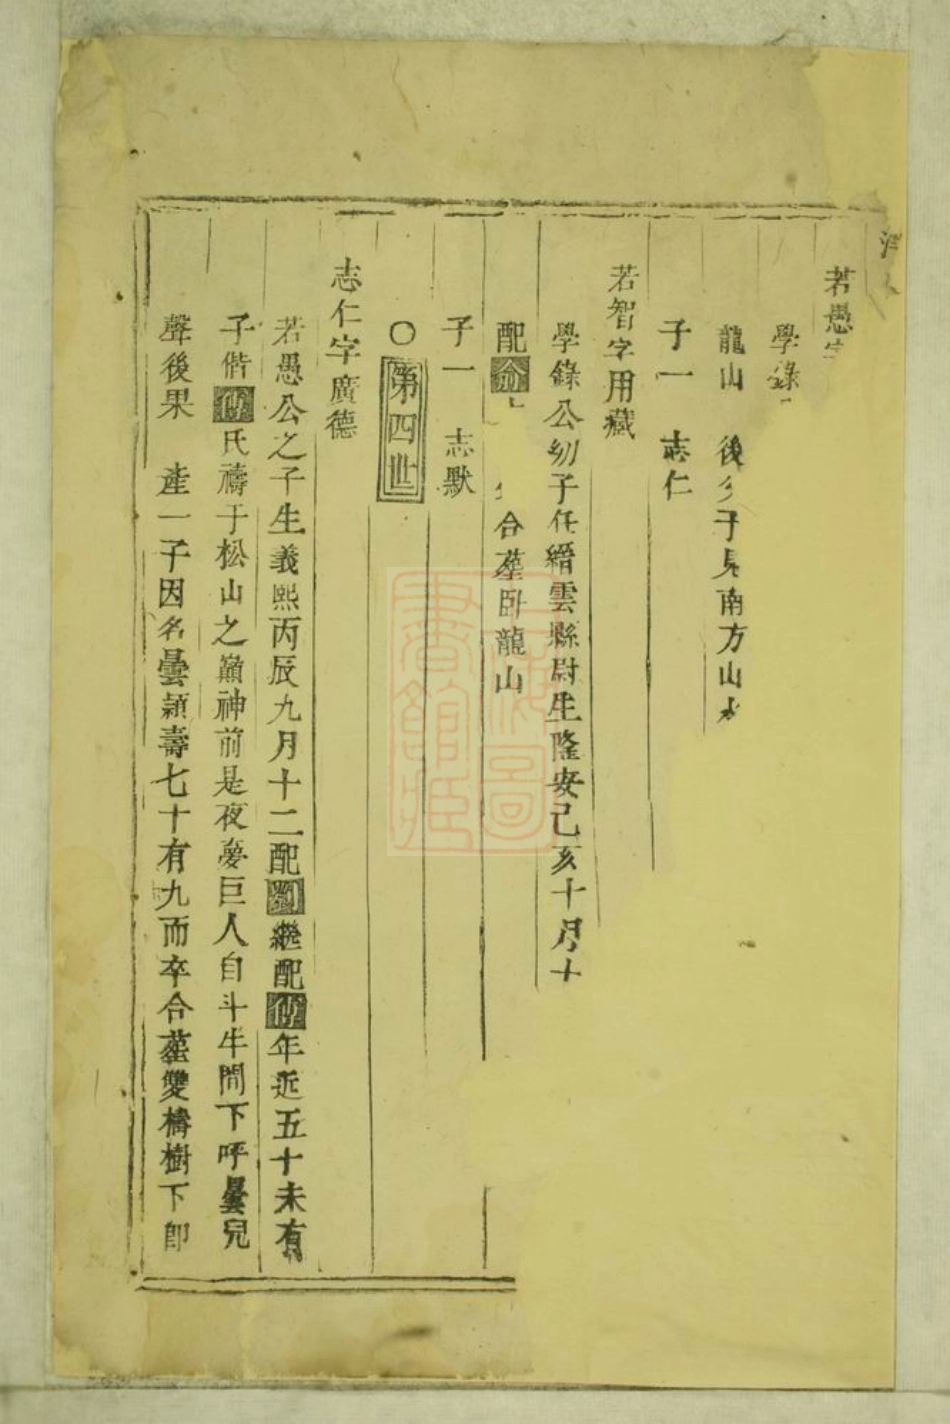 若愚
學錄
龍山 後 子見南方山
子一 志仁
若智字用藏
學錄公幼子任縉雲縣尉生隆安己亥十月十
配俞 合塟臥龍山
子一 志默
○第四世
志仁字廣德
若愚公之子生義熙丙辰九月十二配劉繼配傅年近五十未有
子偕傅氏禱于松山之巔神前是夜夢巨人自斗牛間下呼曇兒
聲後果 產一子因名曇頴壽七十有九而卒合塟雙橋樹下卽